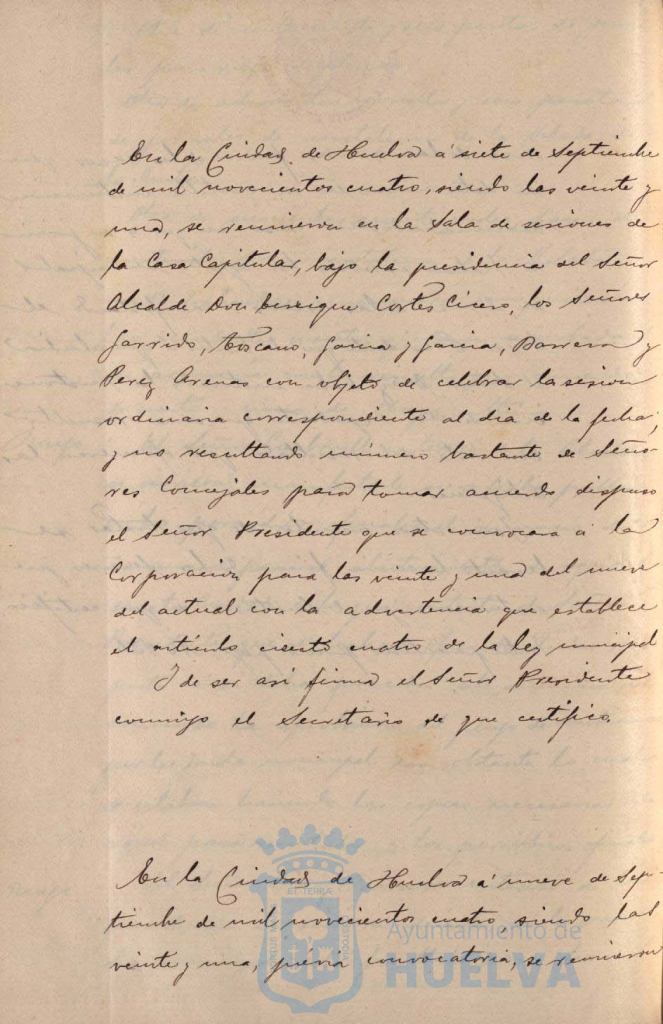 En la Ciudad de Huelva á siete de Septiembre
de mil novecientos cuatro, siendo las veinte y
una, se reunieron en la Sala de sesiones de
la Casa Capitular, bajo la presidencia del Señor
Alcalde Don Enrique Cortes Cicero, los Señores
Garrido, Toscano, Garcia y Garcia, Barrera y
Perez Arenas con objeto de celebrar la sesion
ordinaria correspondiente al dia de la fecha;
y no resultando número bastante de Seño-
res Concejales para tomar acuerdo dispuso
el Señor Presidente que se convocara á la
Corporacion para las veinte y una del nueve
del actual con la advertencia que establece
el articulo ciento cuatro de la ley municipal
Y de ser asi firma el Señor Presidente
conmigo el Secretario de que certifico.
En la Ciudad de Huelva á nueve de Sep-
tiembre de mil novecientos cuatro siendo las
veinte y una, prévia convocatoria, se reunieron
Ayuntamiento de
HUELVA